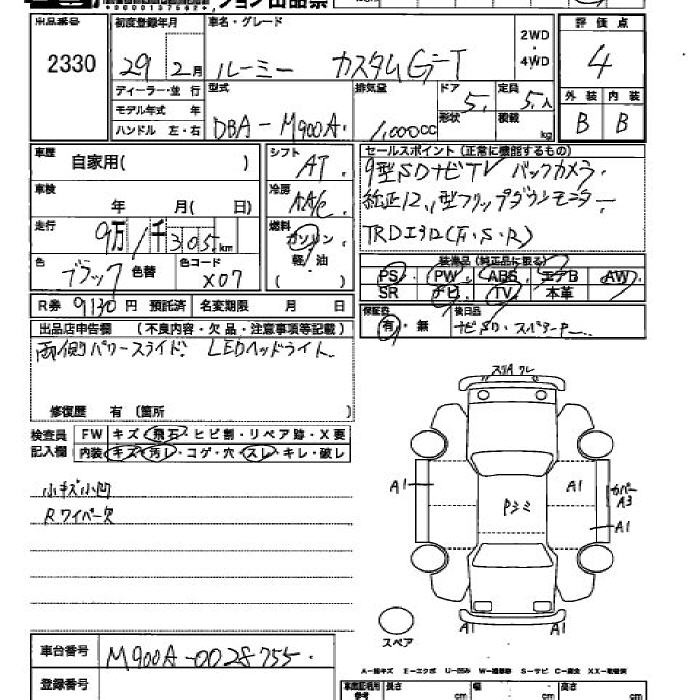 ション出品票
出品番号 初度登録年月 車名・グレード 評価点
2330 29年2月 ルーミー カスタムG-T 2WD・4WD 4
ディーラー・並行 型式 排気量 ドア 5 定員 5人 外装 内装
モデル年式 年 形状 積載 kg
ハンドル 左・右 DBA-M900A 1,000cc B B
車歴 自家用( ) シフト AT
セールスポイント(正常に機能するもの)
9型SDナビTV バックカメラ
純正12.1型フリップダウンモニター
TRDエアロ(F・S・R)
車検 年 月( 日) 冷房 AAC
走行 9万1千305km 燃料 ガソリン・軽油
( )
色 ブラック 色替 色コード X07
装備品(純正品に限る)
PS PW ABS エアB AW
SR ナビ TV 本革
R券 9130円 預託済 名変期限 月 日
保証書 有・無 後日品 ナビSD・スペアキー
出品店申告欄 (不良内容・欠品・注意事項等記載)
両側パワースライド LEDヘッドライト
修復歴 有 (箇所 )
検査員記入欄 FW キズ・飛石・ヒビ割・リペア跡・X要
内装 キズ・汚レ・コゲ・穴・スレ・キレ・破レ
小キズ小凹
Rワイパー欠
スリA ワレ
A1 Pシミ A1 カバーA3
A1
A1 A1
スペア
車台番号 M900A-0028755
登録番号
A−線キズ E−エクボ U−凹み W−補修跡 S−サビ C−腐食 XX−取替済
車庫証明用参考 長さ cm 幅 cm 高さ cm